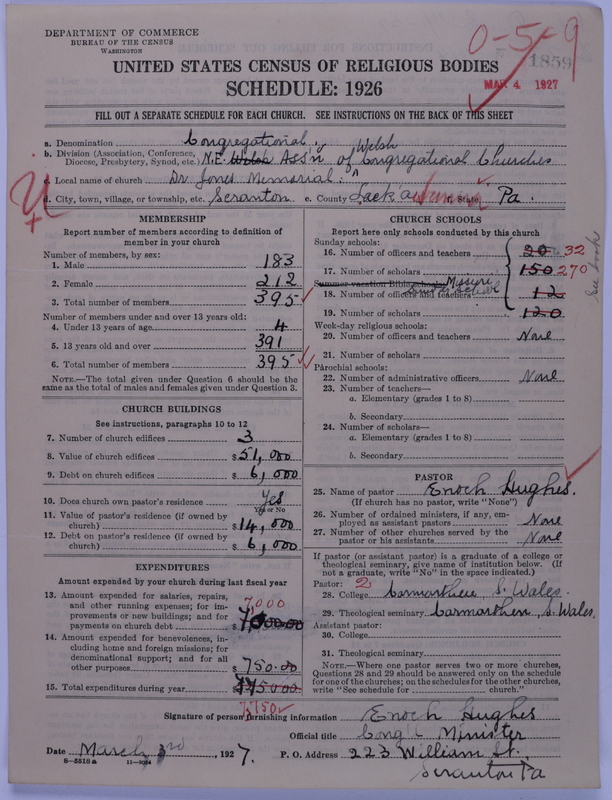 DEPARTMENT OF COMMERCE
BUREAU OF THE CENSUS
WASHINGTON
0-5-9
1859
MAR 4 1927
UNITED STATES CENSUS OF RELIGIOUS BODIES
SCHEDULE: 1926
FILL OUT A SEPARATE SCHEDULE FOR EACH CHURCH. SEE INSTRUCTIONS ON THE BACK OF THIS SHEET
a. Denomination Congregational.
b. Division (Association, Conference, Diocese, Presbytery, Synod, etc.) N.E. Welsh Ass'n of Welsh Congregational Churches
c. Local name of church Dr. Jones Memorial.
d. City, town, village, or township, etc. Scranton e. County Lack'a f. State Pa.
MEMBERSHIP
Report number of members according to definition of
member in your church
Number of members, by sex:
1. Male 183
2. Female 212
3. Total number of members 395
Number of members under and over 13 years old:
4. Under 13 years of age 4
5. 13 years old and over 391
6. Total number of members 395
NOTE.—The total given under Question 6 should be
same as the total of males and females given under Question 3.
CHURCH BUILDINGS
See instructions, paragraphs 10 to 12
7. Number of church edifices 3
8. Value of church edifices $51,000
9. Debt on church edifices $6,000
10. Does church own pastor's residence Yes
Yes or No
11. Value of pastor's residence (if owned by
church) $14,000
12. Debt on pastor's residence (if owned by
church) $6,000
EXPENDITURES
Amount expended by your church during last fiscal year
13. Amount expended for salaries, repairs,
and other running expenses; for im-
provements or new buildings; and for
payments on church debt $
7,000
14. Amount expended for benevolences, in-
cluding home and foreign missions; for
denominational support; and for all
other purposes $750.00
15. Total expenditures during year $775000
7,750
CHURCH SCHOOLS
Report here only schools conducted by this church
Sunday schools:
16. Number of officers and teachers 20 32
17. Number of scholars 150 270
Summer vacation Bible schools: Mission School
18. Number of officers and teachers 12
19. Number of scholars 120
See book
Week-day religious schools:
20. Number of officers and teachers None
21. Number of scholars
Parochial schools:
22. Number of administrative officers None
23. Number of teachers—
a. Elementary (grades 1 to 8)
b. Secondary
24. Number of scholars—
a. Elementary (grades 1 to 8)
b. Secondary
PASTOR
25. Name of pastor Enoch Hughes.
(If church has no pastor, write "None")
26. Number of ordained ministers, if any, em-
ployed as assistant pastors None
27. Number of other churches served by the
pastor or his assistants None
If pastor (or assistant pastor) is a graduate of a college or
theological seminary, give name of institution below. (If
not a graduate, write "No" in the space indicated.)
Pastor: 2
28. College Carmarthen S. Wales.
29. Theological seminary Carmarthen, S. Wales.
Assistant pastor:
30. College
31. Theological seminary
NOTE.—Where one pastor serves two or more churches,
Questions 28 and 29 should be answered only on the schedule
for one of the churches; on the schedules for the other churches,
write "See schedule for church."
Signature of person furnishing information Enoch Hughes
Official title Cong'l Minister
Date March 3rd, 1927. P. O. Address 223 William St.
Scranton Pa
S-5518 a 11-9084